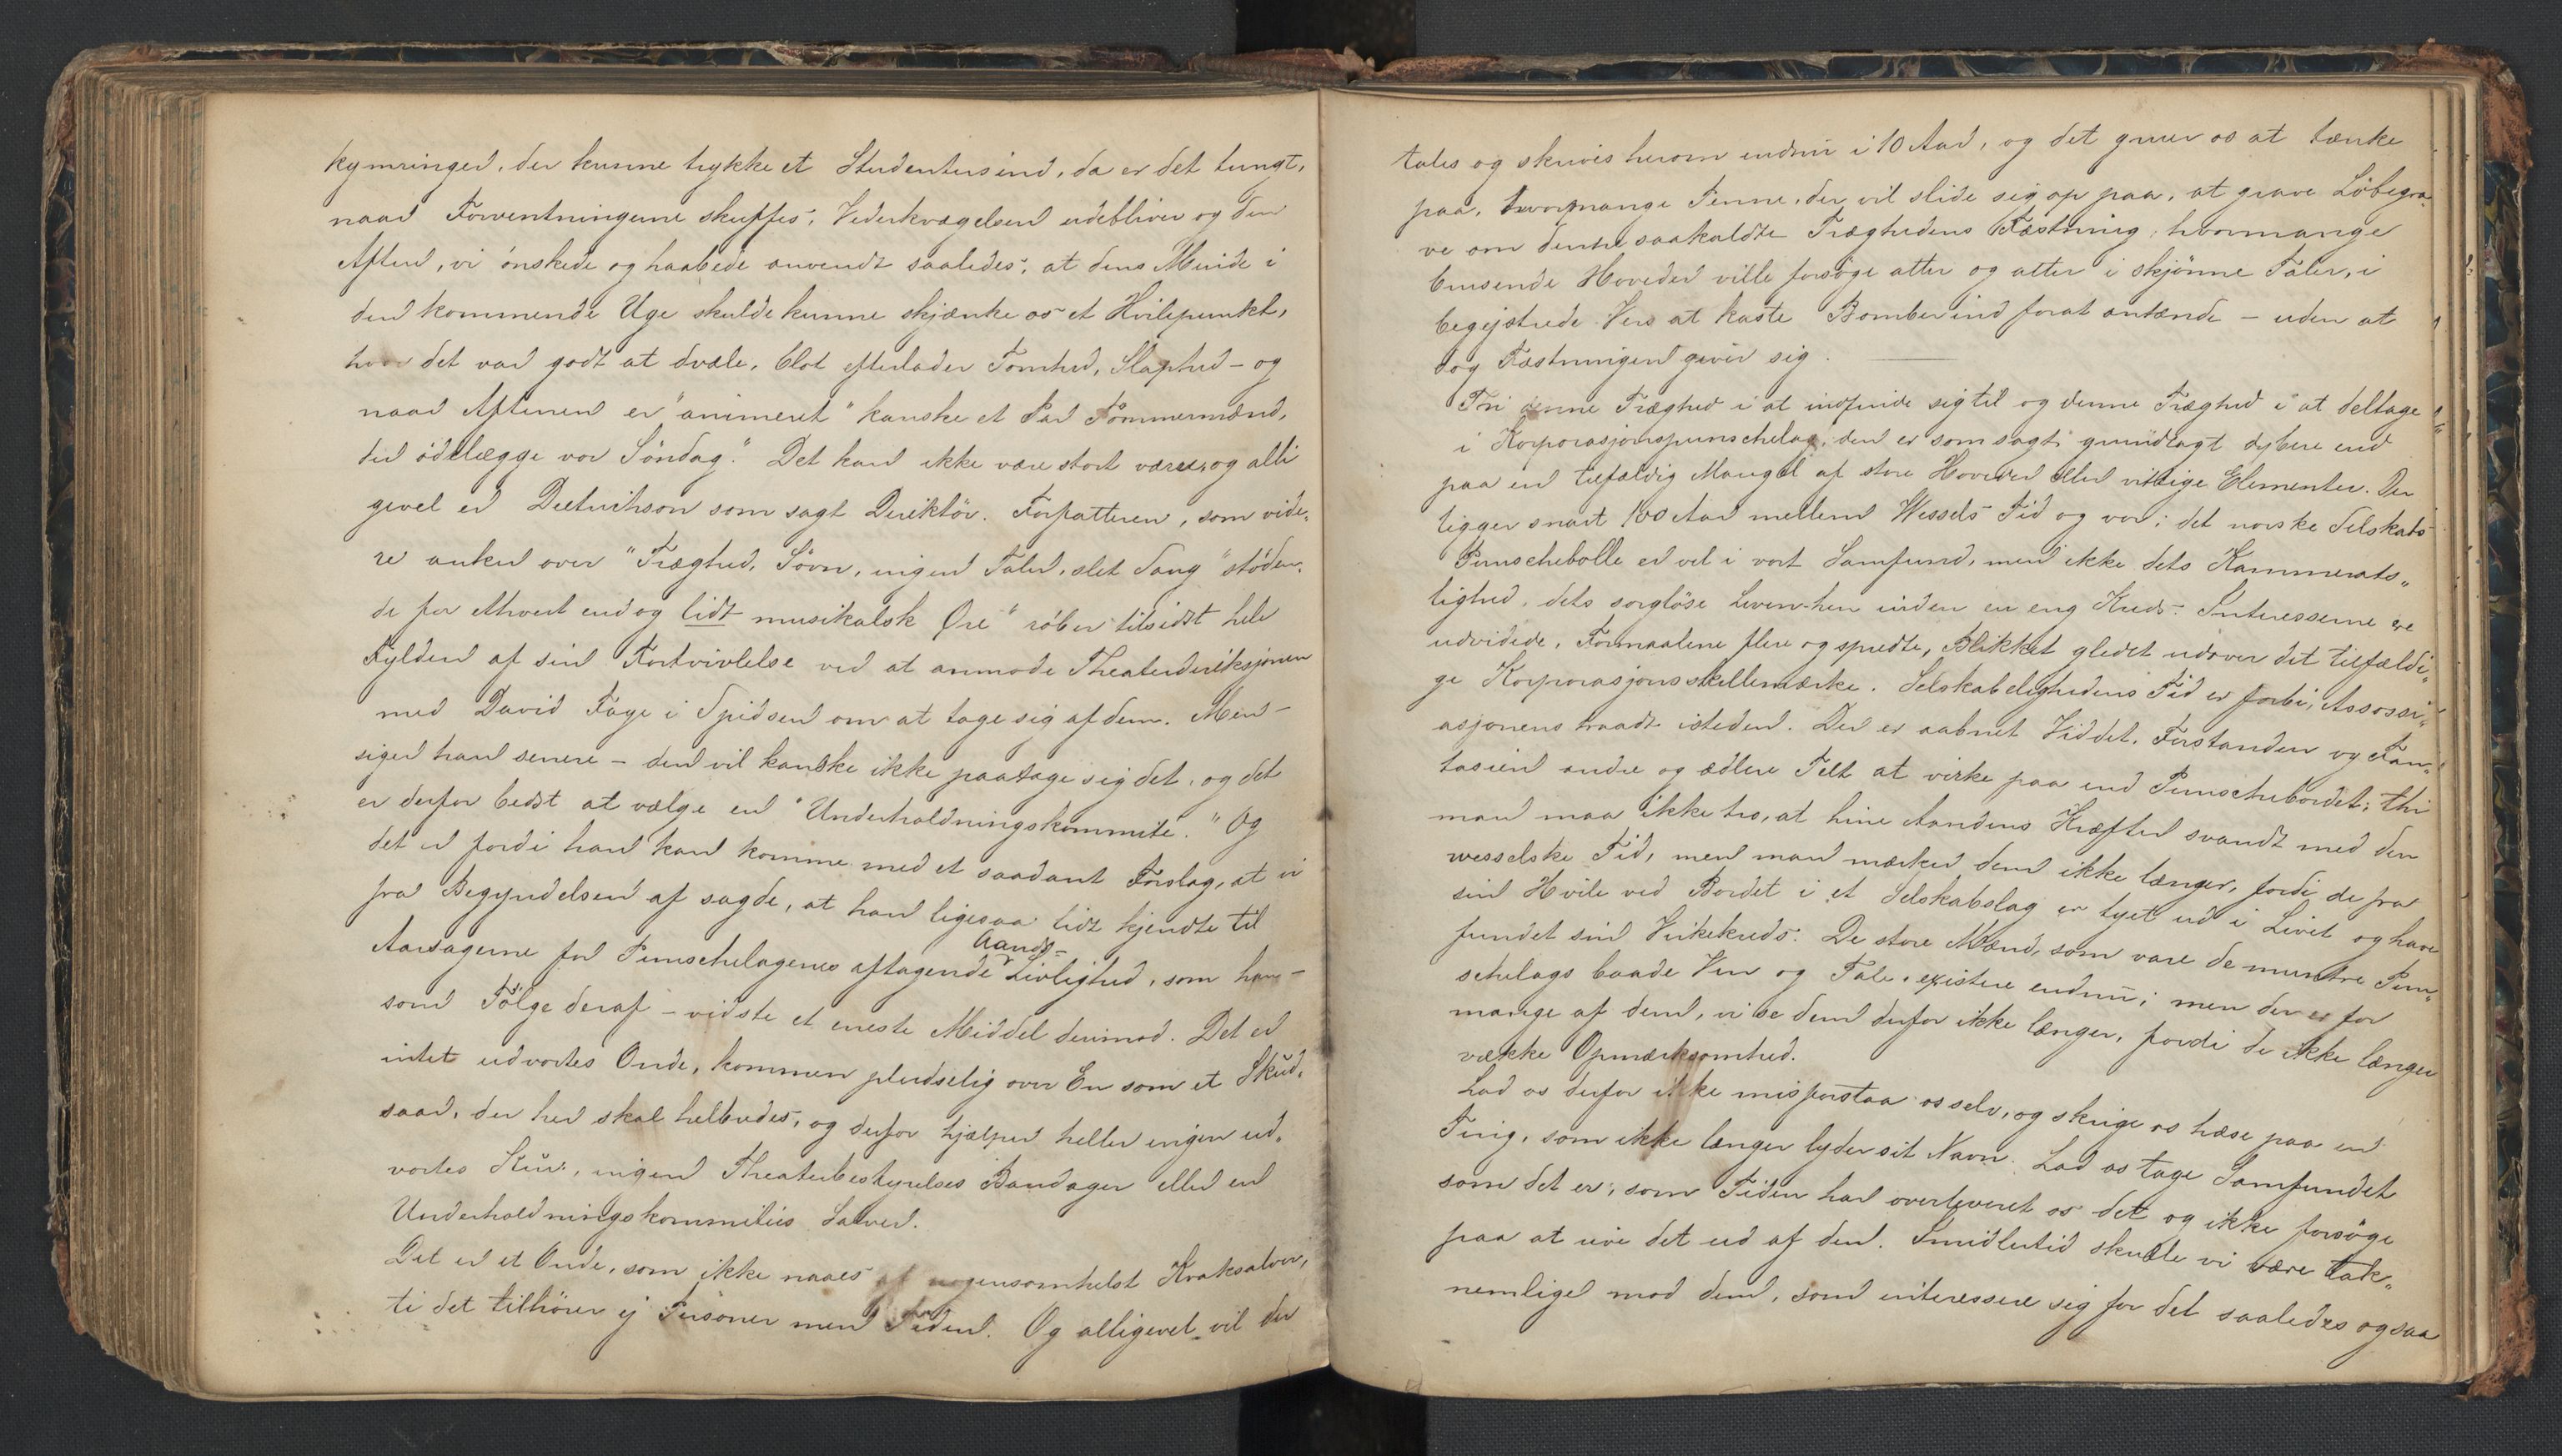 kymringer, der kunne trykke et Studentersind, da er det tungt,
naar Forventningerne skuffes, Vederkvægelsen udebliver og den
Aften, vi ønskede og haabede anvendt saaledes, at dens Minde i
den kommende Uge skulde kunne skjænke os et Hvilepunkt,
hvor det var godt at dvæle, blot efterlader Tomhed, Slaphed – og
naar Aftenen er "animeret" kanske et Par Tømmermænd,
der ødelægge vor Søndag." Det kan ikke være stort værre, og alli
gevel er Dietrichson som sagt Direktør. Forfatteren, som vide„
re anker over "Træghed, Søvn, ingen Taler, slet Sang "støden„
de for ethvert endog lidt musikalsk Øre" røber tilsidst hele
Fylden af sin Fortvivlelse ved at anmode Theaterdireksjonen
med David Føge i Spidsen om at tage sig af dem. Men –
siger han senere – den vil kanske ikke paatage sig det, og det
er derfor bedst at vælge en "Underholdningskommite." Og
det er fordi han kan komme med et saadant Forslag, at vi
fra Begyndelsen af sagde, at han ligesaa lidt kjendte til
Aarsagerne for Punschelagenes aftagende Aands-Livlighed, som han –
som Følge deraf – vidste et eneste Middel derimod. Det er
intet udvortes Onde, kommen pludselig over En som et Skud„
saar, der her skal helbredes, og derfor hjælper heller ingen ud„
vortes Kur, ingen Theaterbestyrelses Bandager eller en
Underholdningskommites Salver.
Det er et Onde, som ikke naaes af nogensomhelst Kvaksalver,
ti det tilhører ej Personer men Tiden. Og alligevel vil der
tales og skrives herom endnu i 10 Aar, og det gruer os at tænke
paa, hvormange Penne, der vil slide sig op paa, at grave Løbegra„
ve om denne saakaldte Træghedens Fæstning, hvormange
brusende Hoveder ville forsøge atter og atter i skjønne Taler, i
begejstrede Vers at kaste Bomber ind forat antænde – uden at
dog Fæstningen giver sig.
Thi denne Træghed i at indfinde sig til og denne Træghed i at deltage
i Korporasjonspunschelag, den er som sagt grundlagt dybere end
paa en tilfældig Mangel af store Hoveder eller vittige Elementer. Der
ligger snart 100 Aar mellem Wessels Tid og vor; det norske Selskabs
Punschebolle er vel i vort Samfund, men ikke dets Kammerats„
lighed, dets sorgløse Leven-hen inden en eng Kreds. Interesserne ere
udvidede, Formaalene flere og spredte, Blikket gledet udover det tilfældi„
ge Korporasjonsskellemærke. Selskabelighedens Tid er forbi, Assossi„
asjonens traadt isteden. Der er aabnet Viddet, Forstanden og Fan„
tasien andre og ædlere Felt at virke paa end Punschebordet; thi
man maa ikke tro, at hine Aandens Kræfter svandt med den
wesselske Tid, men man mærker dem ikke længer, fordi de fra
sin Hvile ved Bordet i et Selskabslag er tyet ud i Livet og have
fundet sin Virkekreds. De store Mænd, som vare de muntre Pun„
schelags baade Vin og Tale, existere endnu; men der er for
mange af dem, vi se dem derfor ikke længer, fordi de ikke længer
vække Opmærksomhed.
Lad os derfor ikke misforstaa os selv, og skrige os hæse paa en
Ting, som ikke længer lyder sit Navn. Lad os tage Samfundet
som det er, som Tiden har overleveret os det og ikke forsøge
paa at rive det ud af den. Imidlertid skulle vi være tak„
nemlige mod dem, som interessere sig for det saaledes ogsaa